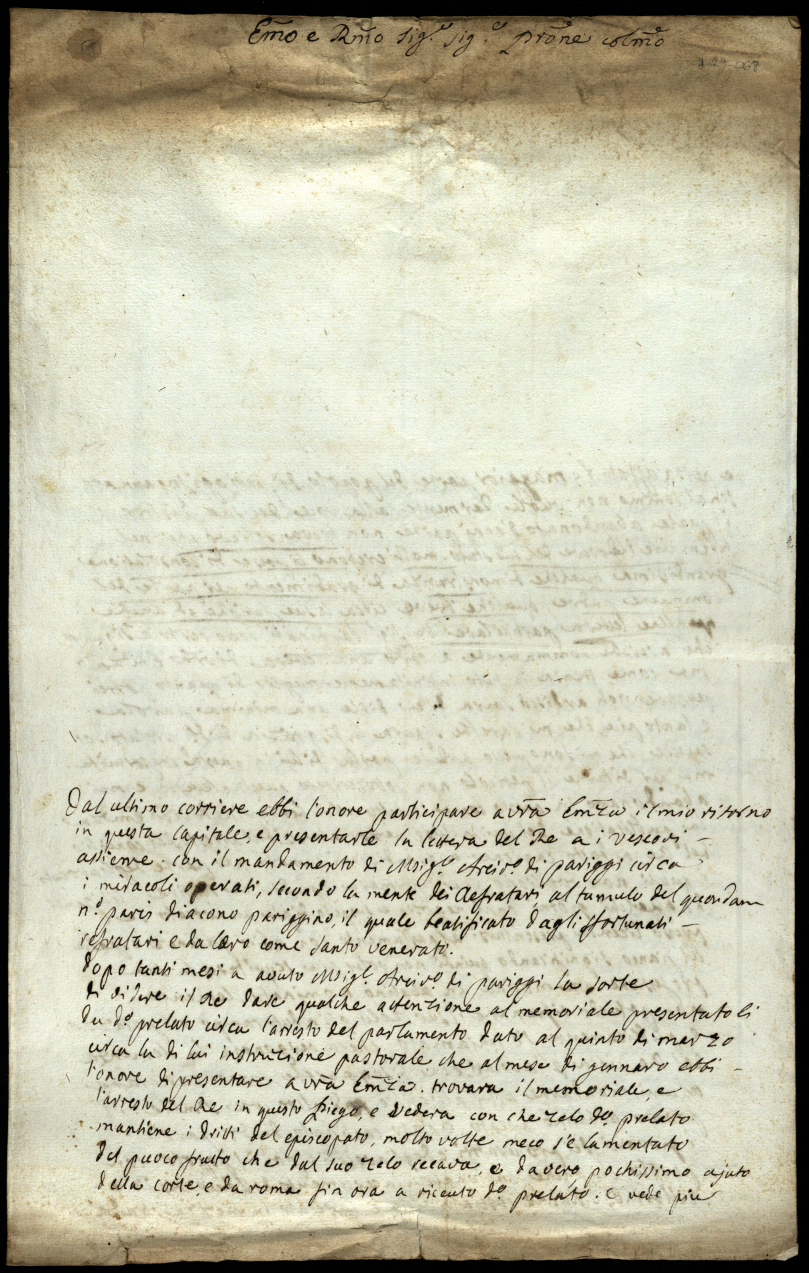 Em̃o e Rm̃o Sig.e Sig.e Prõne colm̃o
Dal ultimo corriere ebbi l'onore participare a vr̃a Em̃za il mio ritorno
in questa capitale, e presentarle la lettera del Re a i vescovi –
assieme con il mandamento di Msig.r Arciv.o di pariggi circa
i miracoli operati, secondo la mente dei Refratari, al tumulo del quondam
n.o paris diacono pariggino, il quale beatificato dagli sfortunati –
refratari e da loro come santo venerato.
Dopo tanti mesi a avuto Msig.r Arciv.o di pariggi la sorte
di videre il Re dare qualche attenzione al memoriale presentatoli
da d.o prelato circa l'arresto del parlamento dato al quinto di marzo
circa la di lui instruzione pastorale che al mese di gennaro ebbi –
l'onore di presentare a vr̃a Em̃za. trovara il memoriale, e
l'arresto del Re in questo piego, e vedera con che zelo d.o prelato
mantiene i driti del episcopato, molto volte meco s'e lamentato
del puoco frutto che dal suo zelo recava, e davero pochissimo ajuto
della corte, e da roma fin ora a riceuto d.o prelato. e vede piu